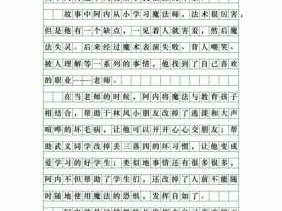 故事中阿内从小学习魔法师，法术很厉害，
但是他有一个缺点，一见着人就害羞，然后魔
法失灵。后来经过魔术表演失败、昔人嘲笑、
被人理解等一系列的事情，他找到了自己喜欢
的职业——老师。
在当老师的时候，阿内将魔法与教育孩子
相结合，帮助于林风小朋友改掉了逃课和大声
喧哗的坏毛病，让他可以开开心心交朋友；帮
助武义同学改掉丢三落四的坏习惯，让他变成
爱学习的好学生；类似地事情还有很多很多，
阿内不但帮助了学生们，还改掉了人前不能随
时随地使用魔法的恐惧，发挥自如了。